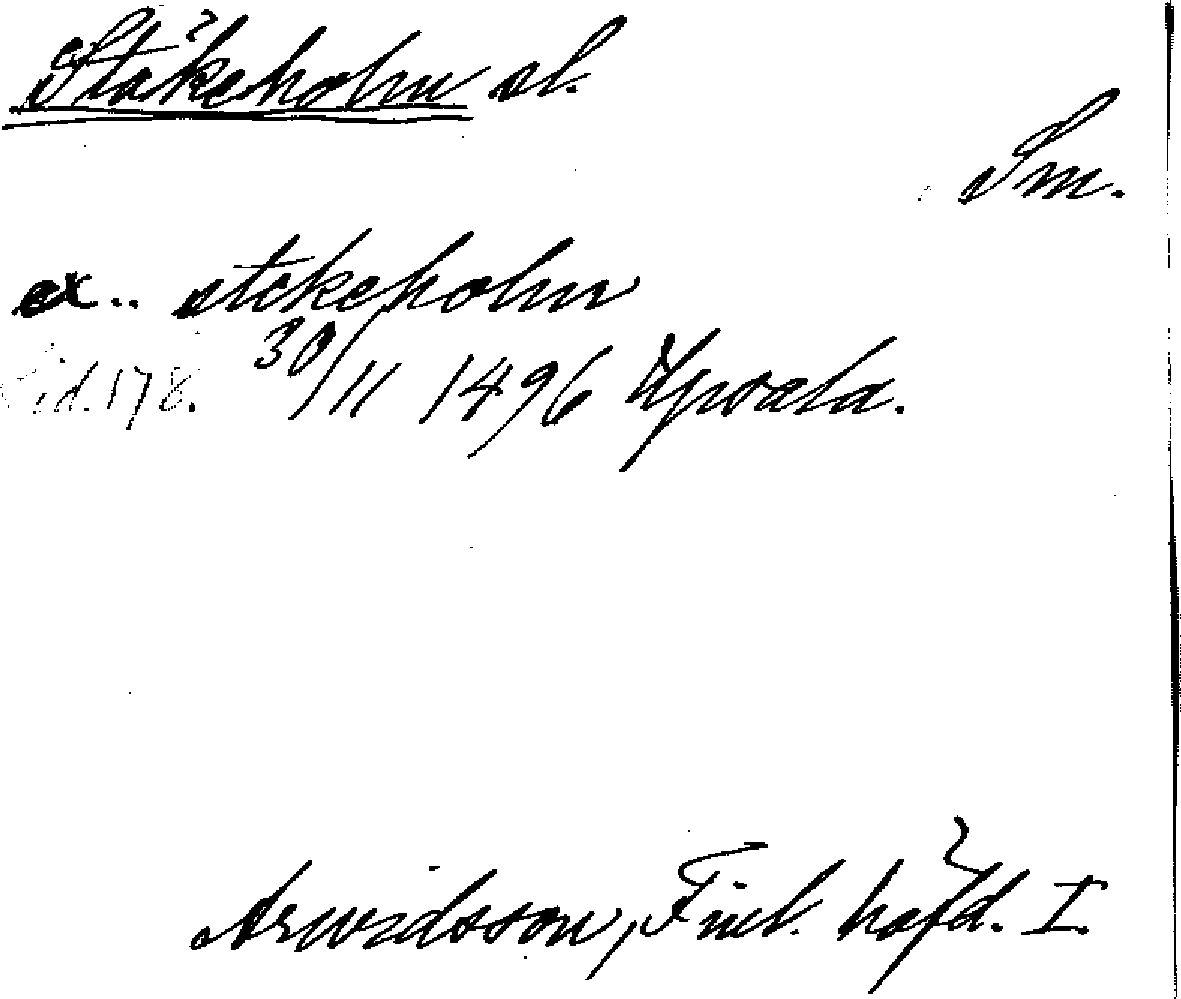 Stäkeholm sl.
Sm.
ex.. stekeholm
Sid. 178. 30/11 1496 Upsala.
Arwidsson, Finl. häfd. I.